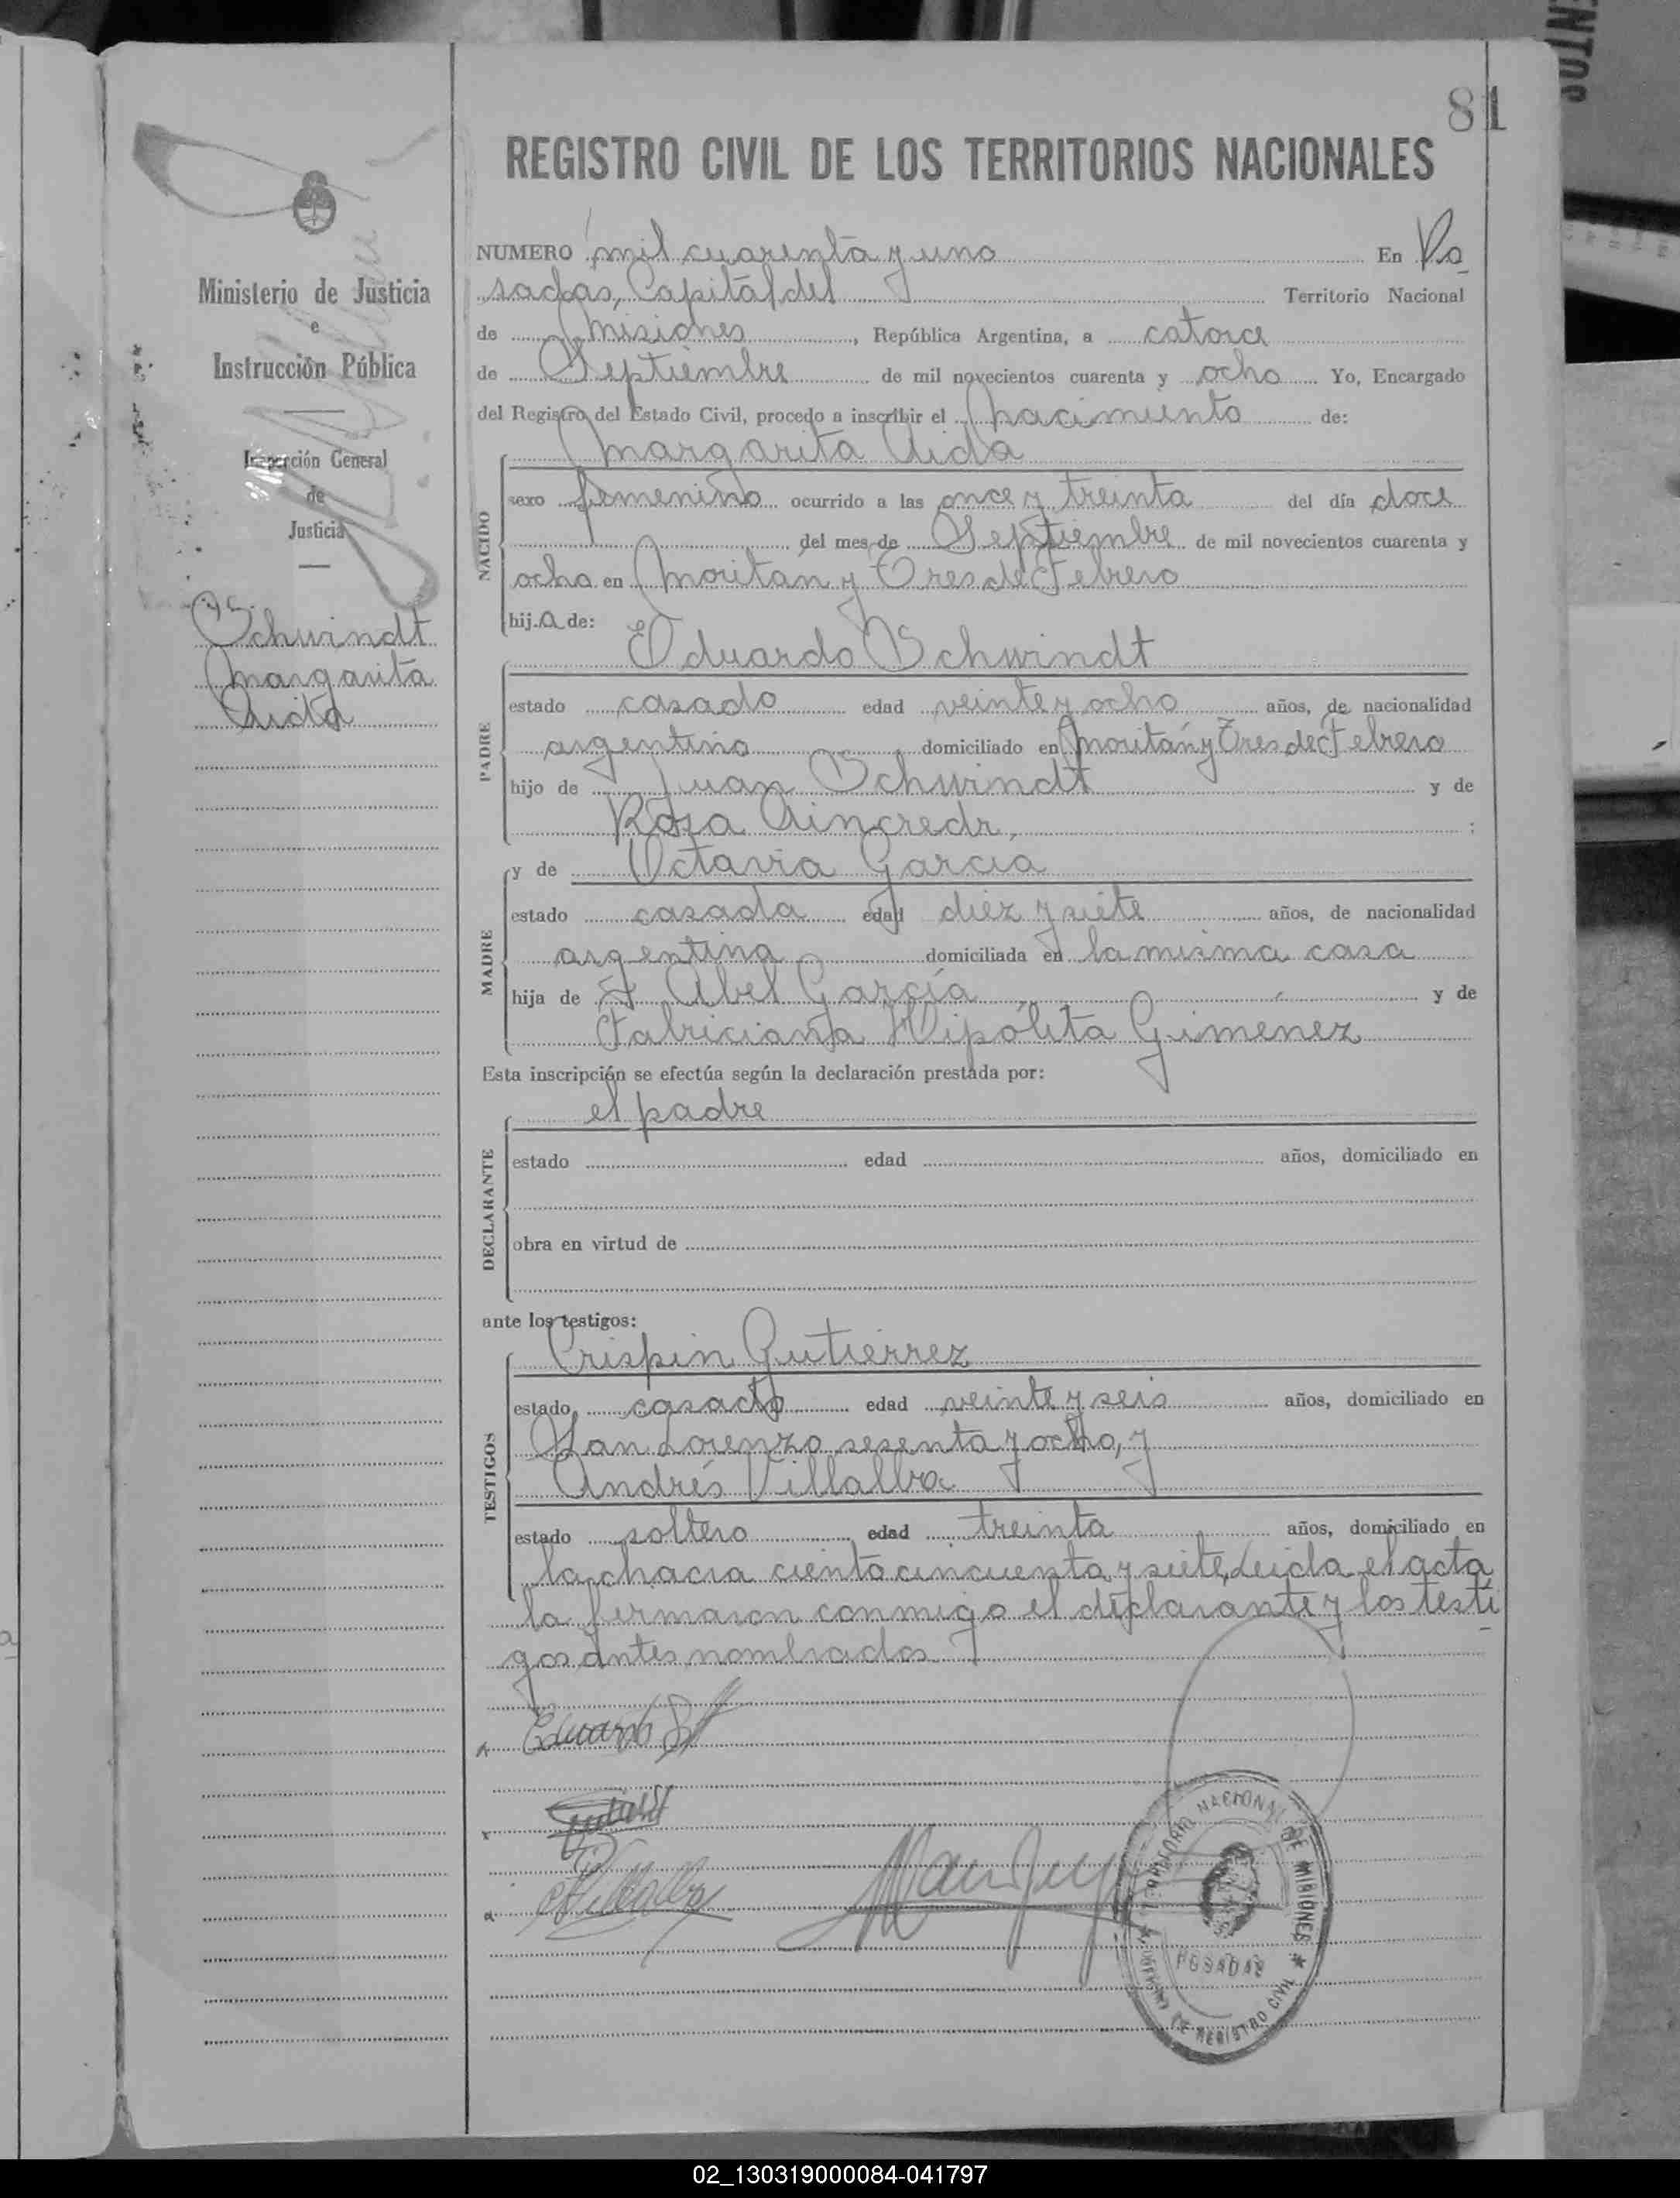 ENTOS
81
REGISTRO CIVIL DE LOS TERRITORIOS NACIONALES
Ministerio de Justicia
e
Instrucción Pública
Inspección General
de
Justicia
Schwindt
Margarita
Aida
NUMERO mil cuarenta y uno En Po
sadas, Capital del Territorio Nacional
de Misiones, República Argentina, a catorce
de Septiembre de mil novecientos cuarenta y ocho Yo, Encargado
del Registro del Estado Civil, procedo a inscribir el nacimiento de:
Margarita Aida
NACIDO
sexo femenino ocurrido a las once y treinta del día doce
del mes de Septiembre de mil novecientos cuarenta y
ocho en Moritan y Tres de Febrero
hija de:
Eduardo Schwindt
PADRE
estado casado edad veinte y ocho años, de nacionalidad
argentino domiciliado en Moritan y Tres de Febrero
hijo de Juan Schwindt y de
Rosa Aincredr, ;
y de Octavia García
MADRE
estado casada edad diez y siete años, de nacionalidad
argentina domiciliada en la misma casa
hija de Abel García y de
Fabriciana Hipólita Gimenez
Esta inscripción se efectúa según la declaración prestada por:
el padre
DECLARANTE
estado edad años, domiciliado en
obra en virtud de
ante los testigos:
Crispin Gutierrez
TESTIGOS
estado casado edad veinte y seis años, domiciliado en
San Lorenzo sesenta y ocho, y
Andrés Villalba
estado soltero edad treinta años, domiciliado en
la chacra ciento cincuenta y siete, Leida el acta
la firmaron conmigo el declarante y los testi
gos antes nombrados
Eduardo
AVillalba
TERRITORIO NACIONAL DE MISIONES
POSADAS
DE REGISTRO CIVIL
02_130319000084-041797